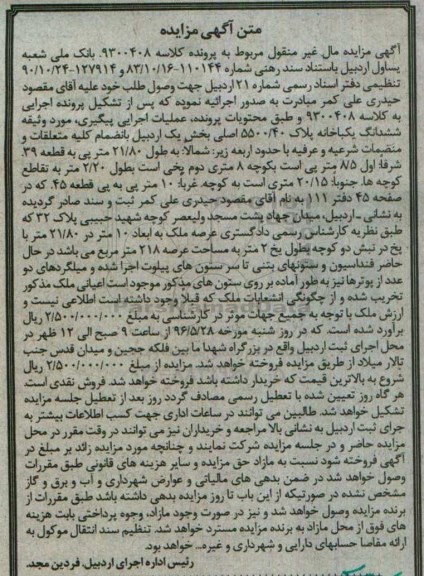 متن آگهی مزایده
آگهی مزایده مال غیر منقول مربوط به پرونده کلاسه ۹۳۰۰۴۰۸ بانک ملی شعبه
یساول اردبیل باستناد سند رهنی شماره ۱۱۰۱۴۴-۸۳/۱۰/۱۶ و ۱۲۷۹۱۴-۹۰/۱۰/۲۴
تنظیمی دفتر اسناد رسمی شماره ۲۱ اردبیل جهت وصول طلب خود علیه آقای مقصود
حیدری علی کمر مبادرت به صدور اجرائیه نموده که پس از تشکیل پرونده اجرایی
به کلاسه ۹۳۰۰۴۰۸ و طبق محتویات پرونده، عملیات اجرایی پیگیری، مورد وثیقه
ششدانگ یکبابخانه پلاک ۵۵۰۰/۴۰ اصلی بخش یک اردبیل بانضمام کلیه متعلقات و
منضمات شرعیه و عرفیه با حدود اربعه زیر: شمالاً: به طول ۲۱/۸۰ متر پی به قطعه ۳۹.
شرقا: اول ۸/۵ متر پی است بکوچه ۸ متری دوم پخی است بطول ۲/۲۰ متر به تقاطع
کوچه ها. جنوبا: ۲۰/۱۵ متری است به کوچه. غربا: ۱۰ متر پی به پی قطعه ۴۵. که در
صفحه ۴۵ دفتر ۱۱۱ به نام آقای مقصود حیدری علی کمر ثبت و سند صادر گردیده
به نشانی ـ اردبیل، میدان جهاد پشت مسجد ولیعصر کوچه شهید حبیبی پلاک ۳۲ که
طبق نظریه کارشناس رسمی دادگستری عرصه ملک به ابعاد ۱۰ متر در ۲۱/۸۰ متر با
پخ در نبش دو کوچه بطول پخ ۲ متر به مساحت عرصه ۲۱۸ متر مربع می باشد در حال
حاضر فنداسیون و ستونهای بتنی تا سر ستون های پیلوت اجرا شده و میلگردهای دو
عدد از پوترها نیز به طور آماده بر روی ستون های مذکور موجود است اعیانی ملک مذکور
تخریب شده و از چگونگی انشعابات ملک که قبلا وجود داشته است اطلاعی نیست و
ارزش ملک با توجه به جمیع جهات موثر در کارشناسی به مبلغ ۲/۵۰۰/۰۰۰/۰۰۰ ریال
برآورد شده است. که در روز شنبه مورخه ۹۶/۵/۲۸ از ساعت ۹ صبح الی ۱۲ ظهر در
محل اجرای ثبت اردبیل واقع در بزرگراه شهدا ما بین فلکه ججین و میدان قدس جنب
تالار میلاد از طریق مزایده فروخته خواهد شد. مزایده از مبلغ ۲/۵۰۰/۰۰۰/۰۰۰ ریال
شروع به بالاترین قیمت که خریدار داشته باشد فروخته خواهد شد. فروش نقدی است.
هر گاه روز تعیین شده با تعطیل رسمی مصادف گردد روز بعد از تعطیل جلسه مزایده
تشکیل خواهد شد. طالبین می توانند در ساعات اداری جهت کسب اطلاعات بیشتر به
جرای ثبت اردبیل به نشانی بالا مراجعه و خریداران نیز می توانند در وقت مقرر در محل
مزایده حاضر و در جلسه مزایده شرکت نمایند و چنانچه مورد مزایده زائد بر مبلغ در
آگهی فروخته شود نسبت به مازاد حق مزایده و سایر هزینه های قانونی طبق مقررات
وصول خواهد شد در ضمن بدهی های مالیاتی و عوارض شهرداری و آب و برق و گاز
مشخص نشده در صورتیکه از این باب تا روز مزایده بدهی داشته باشد طبق مقررات از
برنده مزایده وصول خواهد شد و نیز در صورت وجود مازاد، وجوه پرداختی بابت هزینه
های فوق از محل مازاد به برنده مزایده مسترد خواهد شد. تنظیم سند انتقال موکول به
ارائه مفاصا حسابهای دارایی و شهرداری و غیره... خواهد بود.
رئیس اداره اجرای اردبیل، فردین مجد.